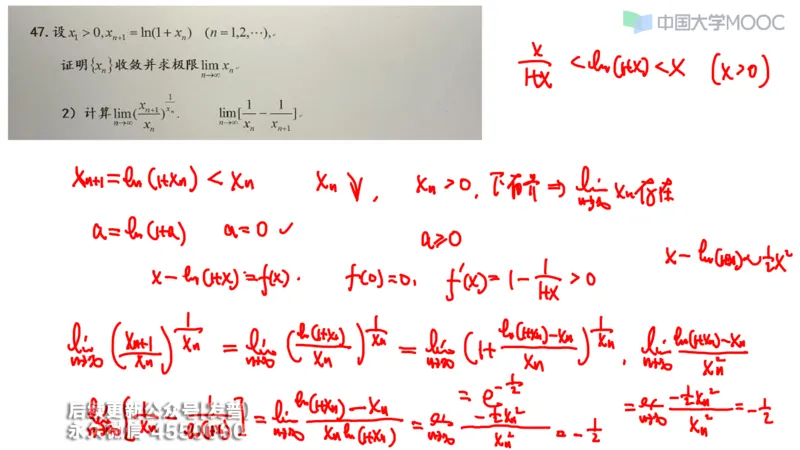 中国大学MOOC
47. 设 x₁ > 0, xₙ₊₁ = ln(1+xₙ) (n=1,2,⋯),
证明{xₙ}收敛并求极限 lim_{n→∞} xₙ
2) 计算 lim_{n→∞} (xₙ₊₁/xₙ)^{1/xₙ}. lim_{n→∞} [1/xₙ − 1/xₙ₊₁].
x/(1+x) < ln(1+x) < x (x>0)
xₙ₊₁ = ln(1+xₙ) < xₙ xₙ ↓, xₙ > 0, 下有界 ⇒ lim_{n→∞} xₙ 存在
a = ln(1+a) a = 0 ✓ a ≥ 0
x − ln(1+x) ~ ½x²
x − ln(1+x) = f(x). f(0) = 0, f′(x) = 1 − 1/(1+x) > 0
lim_{n→∞} (xₙ₊₁/xₙ)^{1/xₙ} = lim_{n→∞} (ln(1+xₙ)/xₙ)^{1/xₙ} = lim_{n→∞} (1 + (ln(1+xₙ)−xₙ)/xₙ)^{1/xₙ}, lim_{n→∞} (ln(1+xₙ)−xₙ)/xₙ²
= e^{−½} = lim_{n→∞} (−½xₙ²)/xₙ² = −½
= lim_{n→∞} (ln(1+xₙ) − xₙ)/(xₙ ln(1+xₙ)) = lim_{n→∞} (−½xₙ²)/xₙ² = −½